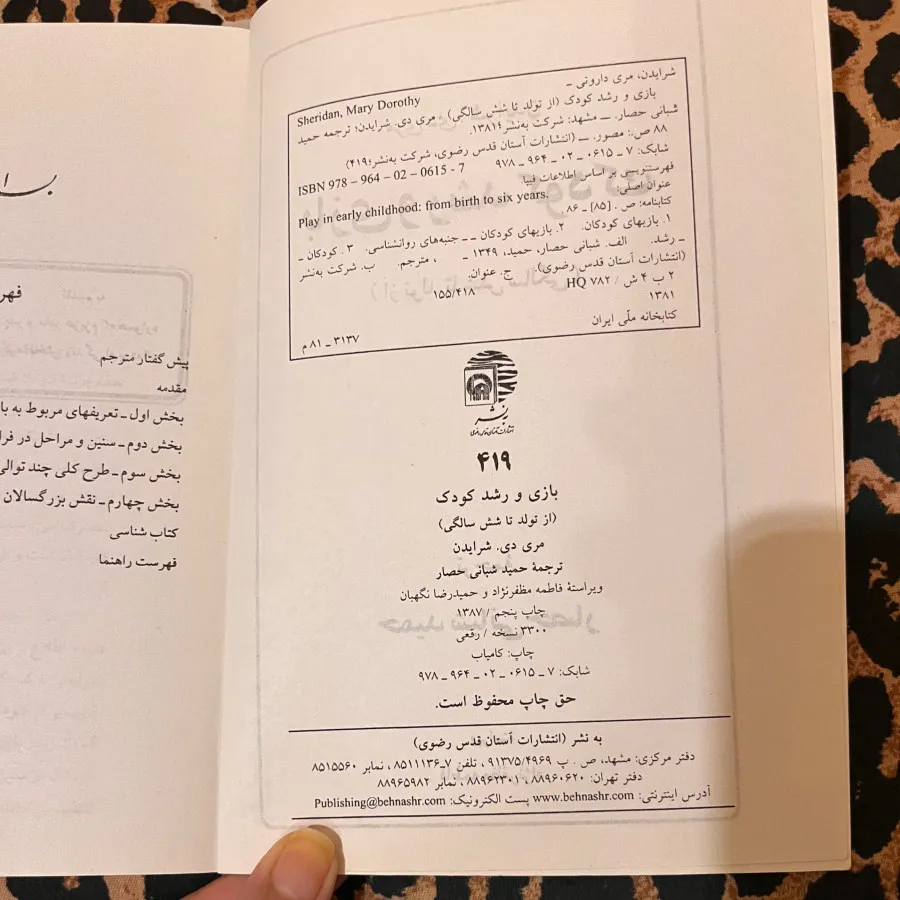 شرایدن، مری داروتی ـ
Sheridan, Mary Dorothy
بازی و رشد کودک (از تولد تا شش سالگی) مری دی. شرایدن؛ ترجمه حمید
شبانی حصار. ـــ مشهد: شرکت به‌نشر؛ ۱۳۸۱.
۸۸ ص.: مصور. ـــ (انتشارات آستان قدس رضوی، شرکت به‌نشر؛ ۴۱۹)
شابک: ۷ ـ ۰۶۱۵ ـ ۰۲ ـ ۹۶۴ ـ ۹۷۸
ISBN 978 – 964 – 02 – 0615 - 7
فهرستنویسی بر اساس اطلاعات فیپا.
عنوان اصلی:
Play in early childhood: from birth to six years.
کتابنامه: ص . [۸۵] ـ ۸۶ .
۱. بازیهای کودکان. ۲. بازیهای کودکان ـ ـ جنبه‌های روانشناسی. ۳. کودکان ـ
ـ رشد. الف. شبانی حصار، حمید، ۱۳۴۹ ـ ، مترجم. ب. شرکت به‌نشر
(انتشارات آستان قدس رضوی). ج. عنوان.
۲ ب ۴ ش / HQ ۷۸۲
۱۵۵/۴۱۸
۱۳۸۱
کتابخانه ملّی ایران
۳۱۳۷ ـ ۸۱ م
به نشر
انتشارات آستان قدس رضوی
۴۱۹
بازی و رشد کودک
(از تولد تا شش سالگی)
مری دی. شرایدن
ترجمهٔ حمید شبانی حصار
ویراستهٔ فاطمه مظفرنژاد و حمیدرضا نگهبان
چاپ پنجم / ۱۳۸۷
۳۳۰۰ نسخه / رقعی
چاپ: کامیاب
شابک: ۷ ـ ۰۶۱۵ ـ ۰۲ ـ ۹۶۴ ـ ۹۷۸
حق چاپ محفوظ است.
به نشر (انتشارات آستان قدس رضوی)
دفتر مرکزی: مشهد، ص . پ ۹۱۳۷۵/۴۹۶۹ ، تلفن ۷ـ۸۵۱۱۱۳۶ ، نمابر ۸۵۱۵۵۶۰
دفتر تهران: ۸۸۹۶۰۶۲۰ ، ۸۸۹۶۲۳۰۱ ، نمابر ۸۸۹۶۵۹۸۲
آدرس اینترنتی: www.behnashr.com پست الکترونیک: Publishing@behnashr.com
فهر
پیش گفتار مترجم
مقدمه
بخش اول ـ تعریفهای مربوط به با
بخش دوم ـ سنین و مراحل در فرا
بخش سوم ـ طرح کلی چند توالی
بخش چهارم ـ نقش بزرگسالان
کتاب شناسی
فهرست راهنما